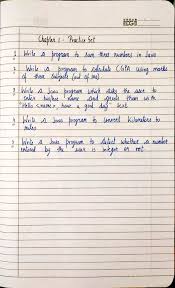 Chapter 1 - Practice Set
1 Write a program to sum three numbers in Java
2 Write a program to calculate CGPA using marks
of three subjects (out of 100)
3 Write a Java program which asks the user to
enter his/her name and greets them with
Hello <name>, have a good day text
4 Write a Java program to convert Kilometers to
miles
5 Write a Java program to detect whether a number
entered by the user is integer or not